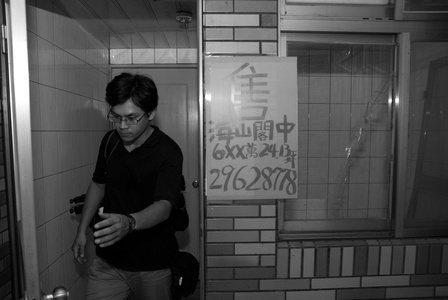 售
海山閣中
6XX萬24.13坪
29628778